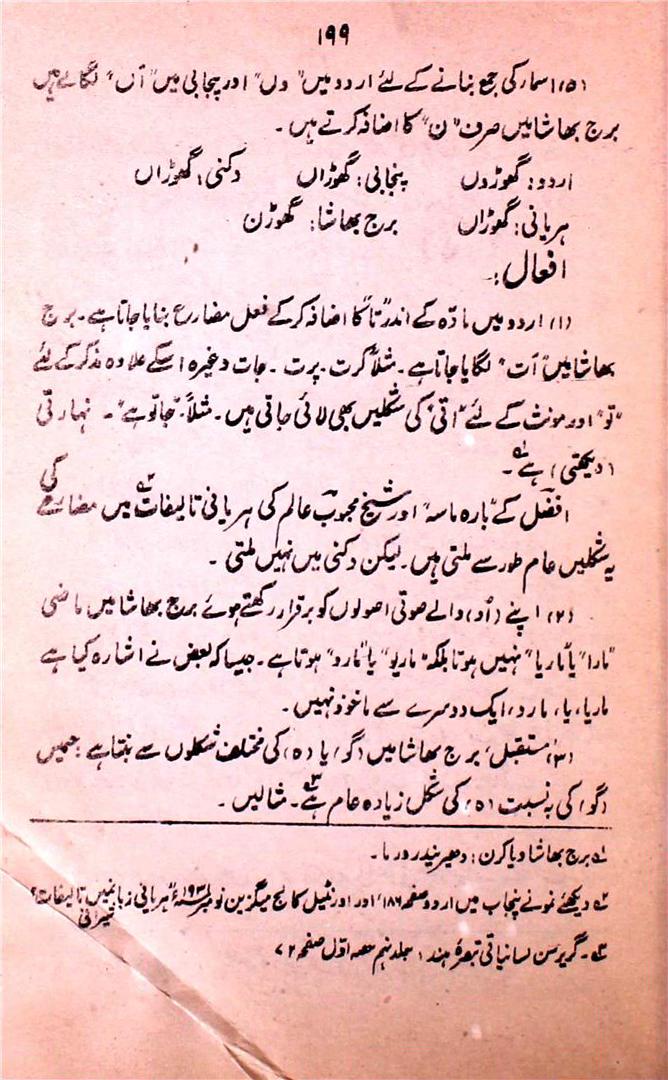 ۱۹۹
(۵) اسماء کی جمع بنانے کے لئے اردو میں "وں" اور پنجابی میں "آں" لگاتے ہیں
برج بھاشا میں صرف "ن" کا اضافہ کرتے ہیں۔
اردو: گھوڑوں پنجابی: گھوڑاں دکنی: گھوڑاں
ہریانی: گھوڑاں برج بھاشا: گھوڑن
افعال:۔
(۱) اردو میں مادّہ کے اندر "تا" کا اضافہ کرکے فعل مضارع بنایا جاتا ہے۔ برج
بھاشا میں "اَت" لگایا جاتا ہے۔ مثلاً کرت۔ پرت۔ جات وغیرہ اسکے علاوہ مذکر کے لئے
"تو" اور مونث کے لئے "اتی" کی شکلیں بھی لائی جاتی ہیں۔ مثلاً "جاتو ہے"۔ نہارتی
(دیکھتی) ہے۱؎۔
افضل کے "بارہ ماسہ" اور شیخ محبوب عالم کی ہریانی تالیفات۲؎ میں مضارع کی
یہ شکلیں عام طور سے ملتی ہیں۔ لیکن دکنی میں نہیں ملتی۔
(۲) اپنے (اُو) والے صوتی اصولوں کو برقرار رکھتے ہوئے برج بھاشا میں ماضی
"مارا" یا "ماریا" نہیں ہوتا بلکہ "ماریو" یا "مارو" ہوتا ہے۔ جیسا کہ بعض نے اشارہ کیا ہے
ماریا، یا، مارو، ایک دوسرے سے ماخوذ نہیں۔
(۳) مستقبل، برج بھاشا میں (گو) یا (ہ) کی مختلف شکلوں سے بنتا ہے جسمیں
(گو) کی بہ نسبت (ہ) کی شکل زیادہ عام ہے۳؎۔ مثالیں۔
۱؎ برج بھاشا ویاکرن: دھیریندر ورما۔
۲؎ دیکھئے نمونے پنجاب میں اردو صفحہ ۱۸۶، اور اورنٹیل کالج میگزین نومبر ۱۹۳۱ء "ہریانی زبانمیں تالیفات" شیرانی
۳؎۔ گریرسن لسانیاتی تبصرۂ ہند: جلد نہم حصہ اوّل صفحہ ۷۲